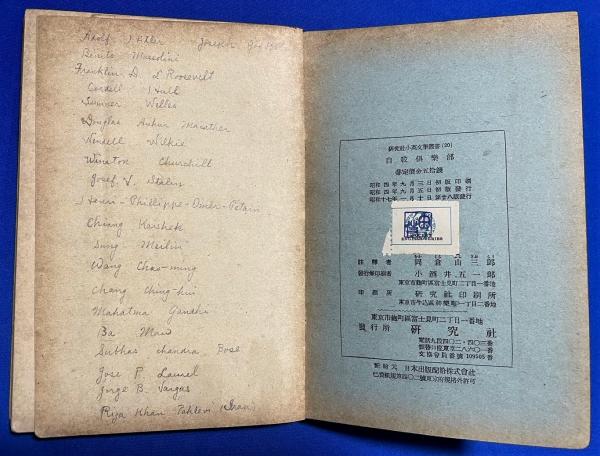 Adolf Hitler Joseph
Benito Mussolini
Franklin D. L Roosevelt
Cordell Hull
Sumner Welles
Douglas Arthur Macarther
Wendell Wilkie
Winston Churchill
Josef V. Stalin
Henri-Phillippe-Omer-Petain
Chiang Kaishek
Sung Meilin
Wang Chao-ming
Chang Ching-hui
Mahatma Gandhi
Ba Maw
Subhas chandra Bose
Jose P. Laurel
Jorge B. Vargas
Riza Khan Pahlevi (Iran)
研究社小英文學叢書 (20)
自殺俱樂部
定價金五拾錢
昭和四年九月三日初版印刷
昭和四年九月五日初版發行
昭和十七年一月十日第廿八版發行
註釋者 岡倉由三郎
發行兼印刷者 小酒井五一郎
東京市麴町區富士見町二丁目一番地
印刷所 研究社印刷所
東京市牛込區神樂町一丁目二番地
東京市麴町區富士見町二丁目一番地
發行所 研究社
電話九段四〇二・四〇三番
振替口座東京二八六〇一番
文協會員番號 109505番
配給元 日本出版配給株式會社